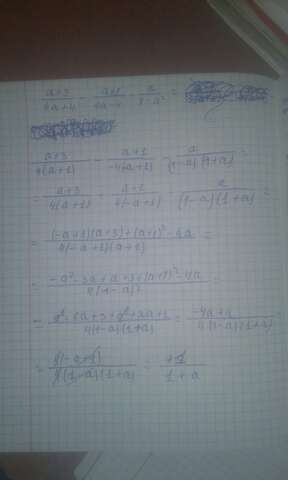 (a+3)/(4a+4) - (a+1)/(4a-4) - a/(1-a²) =
(a+3)/(4(a+1)) - (a+1)/(-4(a+1)) - a/((1-a)(1+a)) =
= (a+3)/(4(a+1)) - (a+1)/(4(-a+1)) - a/((1-a)(1+a)) =
= ((-a+1)(a+3)+(a+1)²-4a)/(4(-a+1)(a+1)) =
= (-a²-3a+a+3+(a+1)²-4a)/(4(1-a)²) =
= (-a²-6a+3+a²+2a+1)/(4(1-a)(1+a)) = (-4a+4)/(4(1-a)(1+a))
= 4(-a+1)/(4(1-a)(1+a)) = +1/(1+a)